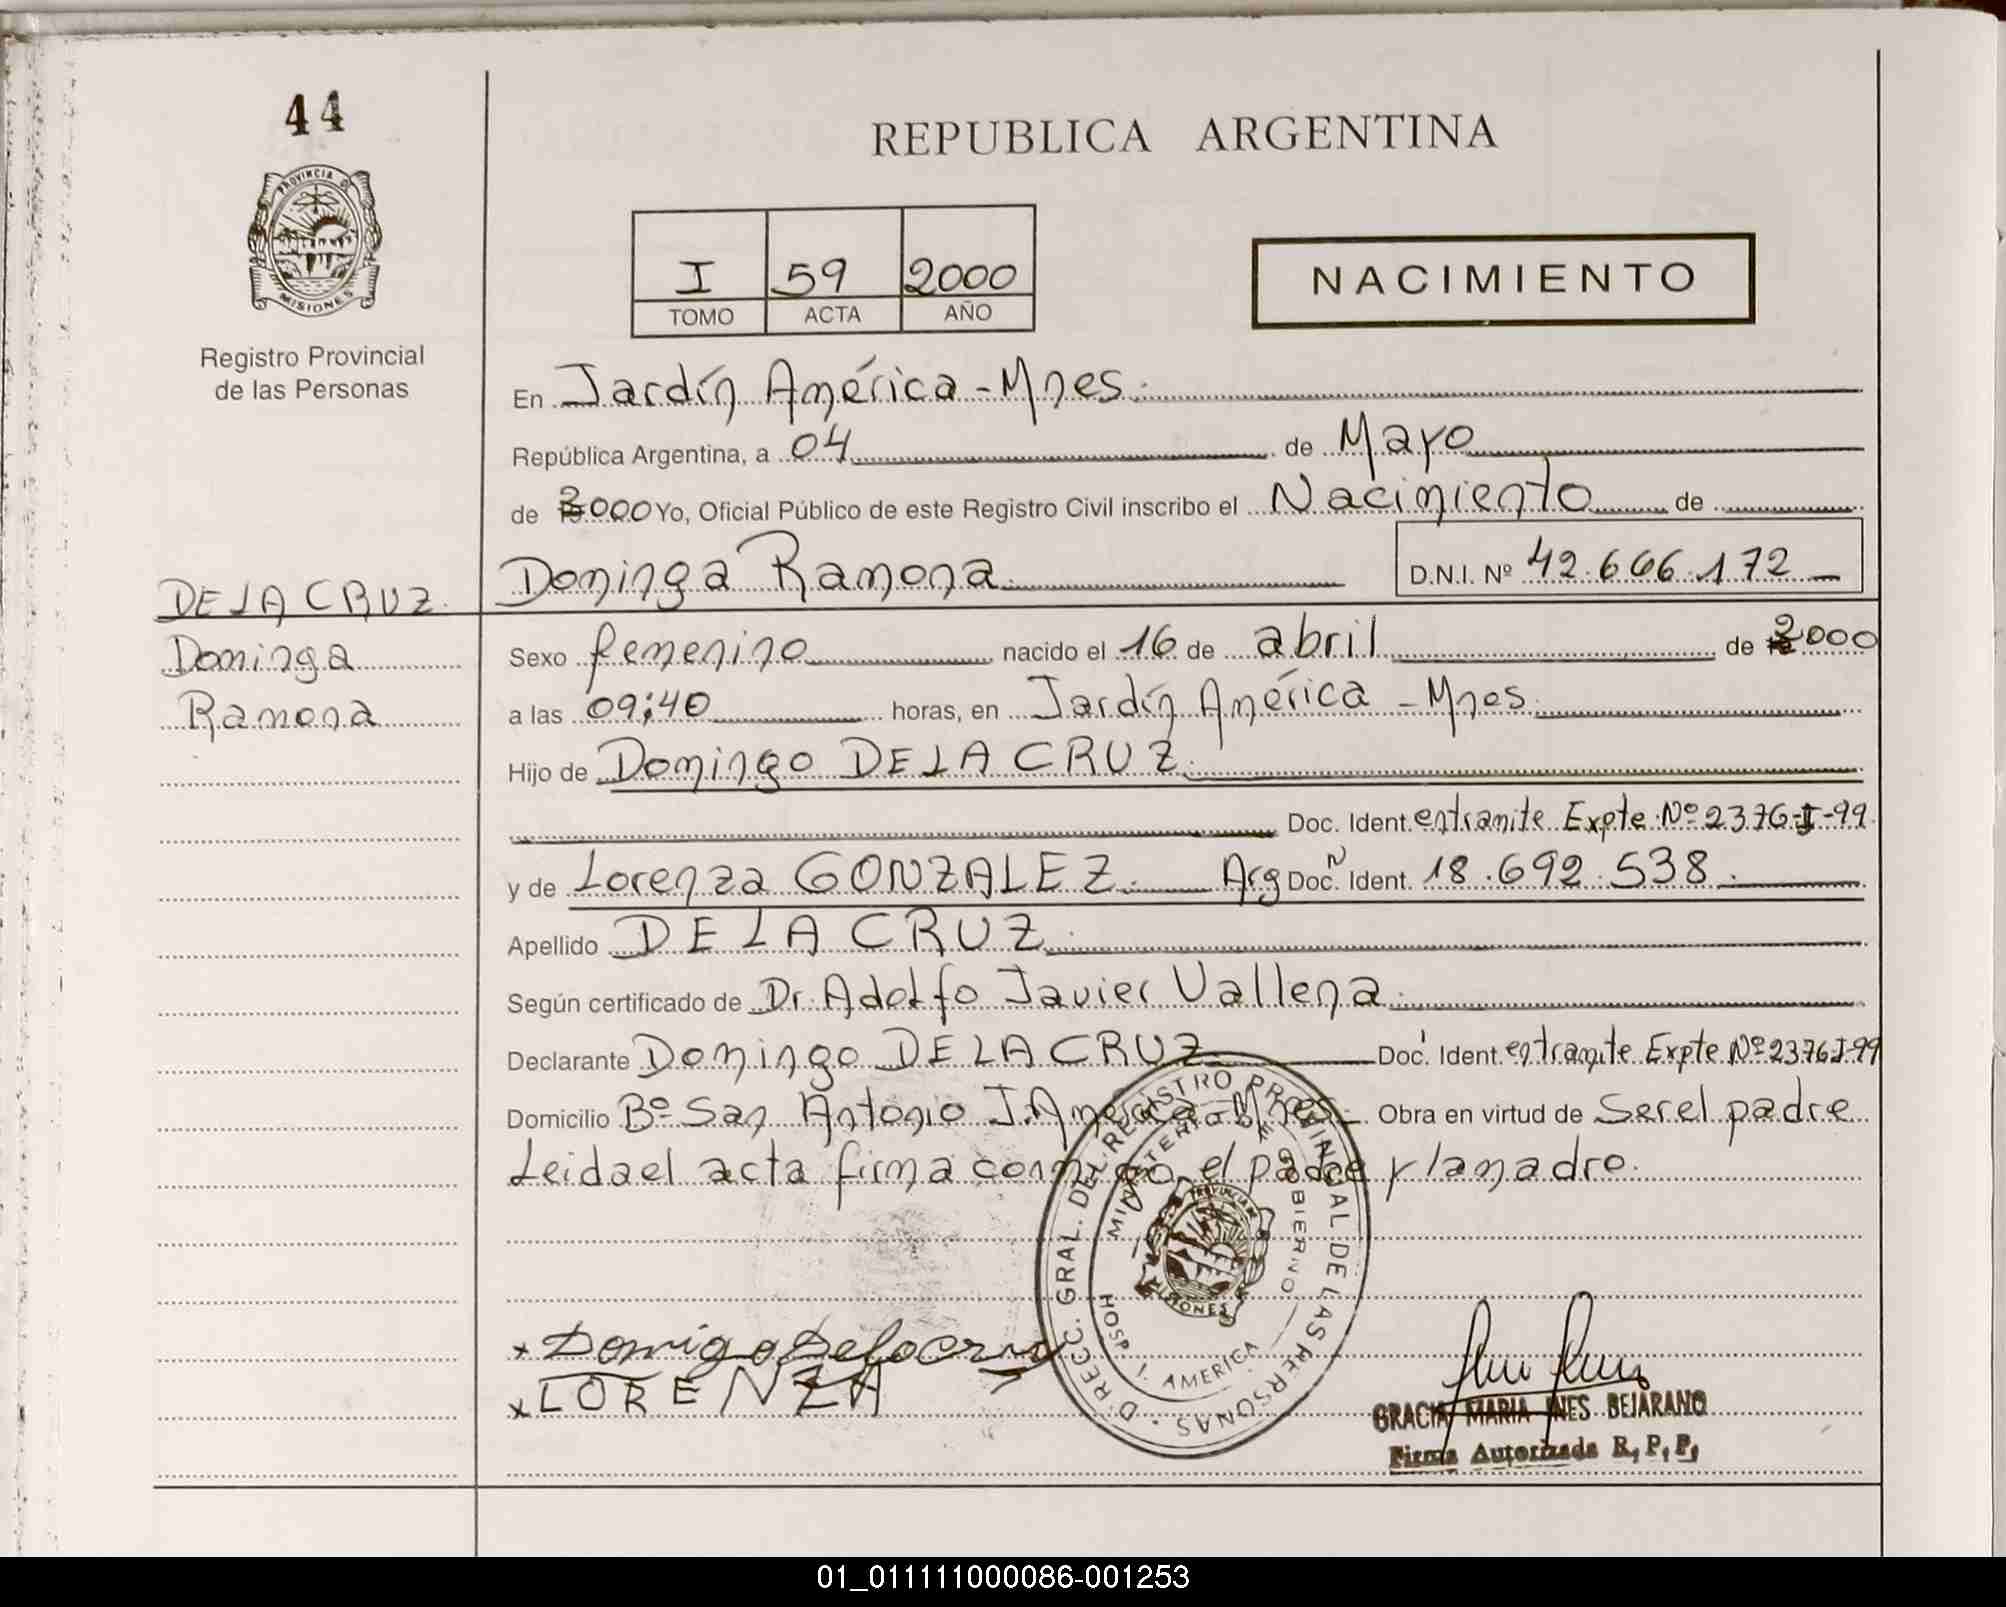 44
PROVINCIA D
MISIONES
Registro Provincial
de las Personas
REPUBLICA ARGENTINA
I 59 2000
TOMO ACTA AÑO
NACIMIENTO
En Jardín América - Mnes.
República Argentina, a 04 de Mayo
de 2000 Yo, Oficial Público de este Registro Civil inscribo el Nacimiento de
Dominga Ramona D.N.I. Nº 42.666.172
DE LA CRUZ
Dominga
Ramona
Sexo femenino nacido el 16 de abril de 2000
a las 09:40 horas, en Jardín América - Mnes.
Hijo de Domingo DE LA CRUZ
Doc. Ident. entramite Expte Nº 2376-I-99
y de Lorenza GONZALEZ. Arg Doc. N Ident. 18.692.538.
Apellido DE LA CRUZ
Según certificado de Dr. Adolfo Javier Vallena
Declarante Domingo DE LA CRUZ Doc. Ident. entramite Expte Nº 2376-I-99
Domicilio Bº San Antonio J. América - Mnes Obra en virtud de Ser el padre
Leida el acta firma conmigo el padre y la madre.
DIRECC. GRAL. DEL REGISTRO PROVINCIAL DE LAS PERSONAS
MINISTERIO DE GOBIERNO
HOSP. J. AMERICA
PROVINCIA
MISIONES
x Domigo Delacruz
x LORENZA
GRACIA MARIA INES BEJARANO
Firma Autorizada R. P. P.
01_011111000086-001253